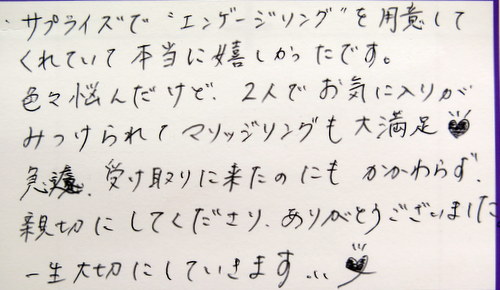 ・サプライズで“エンゲージリング”を用意して
くれていて本当に嬉しかったです。
色々悩んだけど、2人でお気に入りが
みつけられてマリッジリングも大満足
急遽、受け取りに来たのにもかかわらず、
親切にしてくださり、ありがとうございました
一生大切にしていきます...